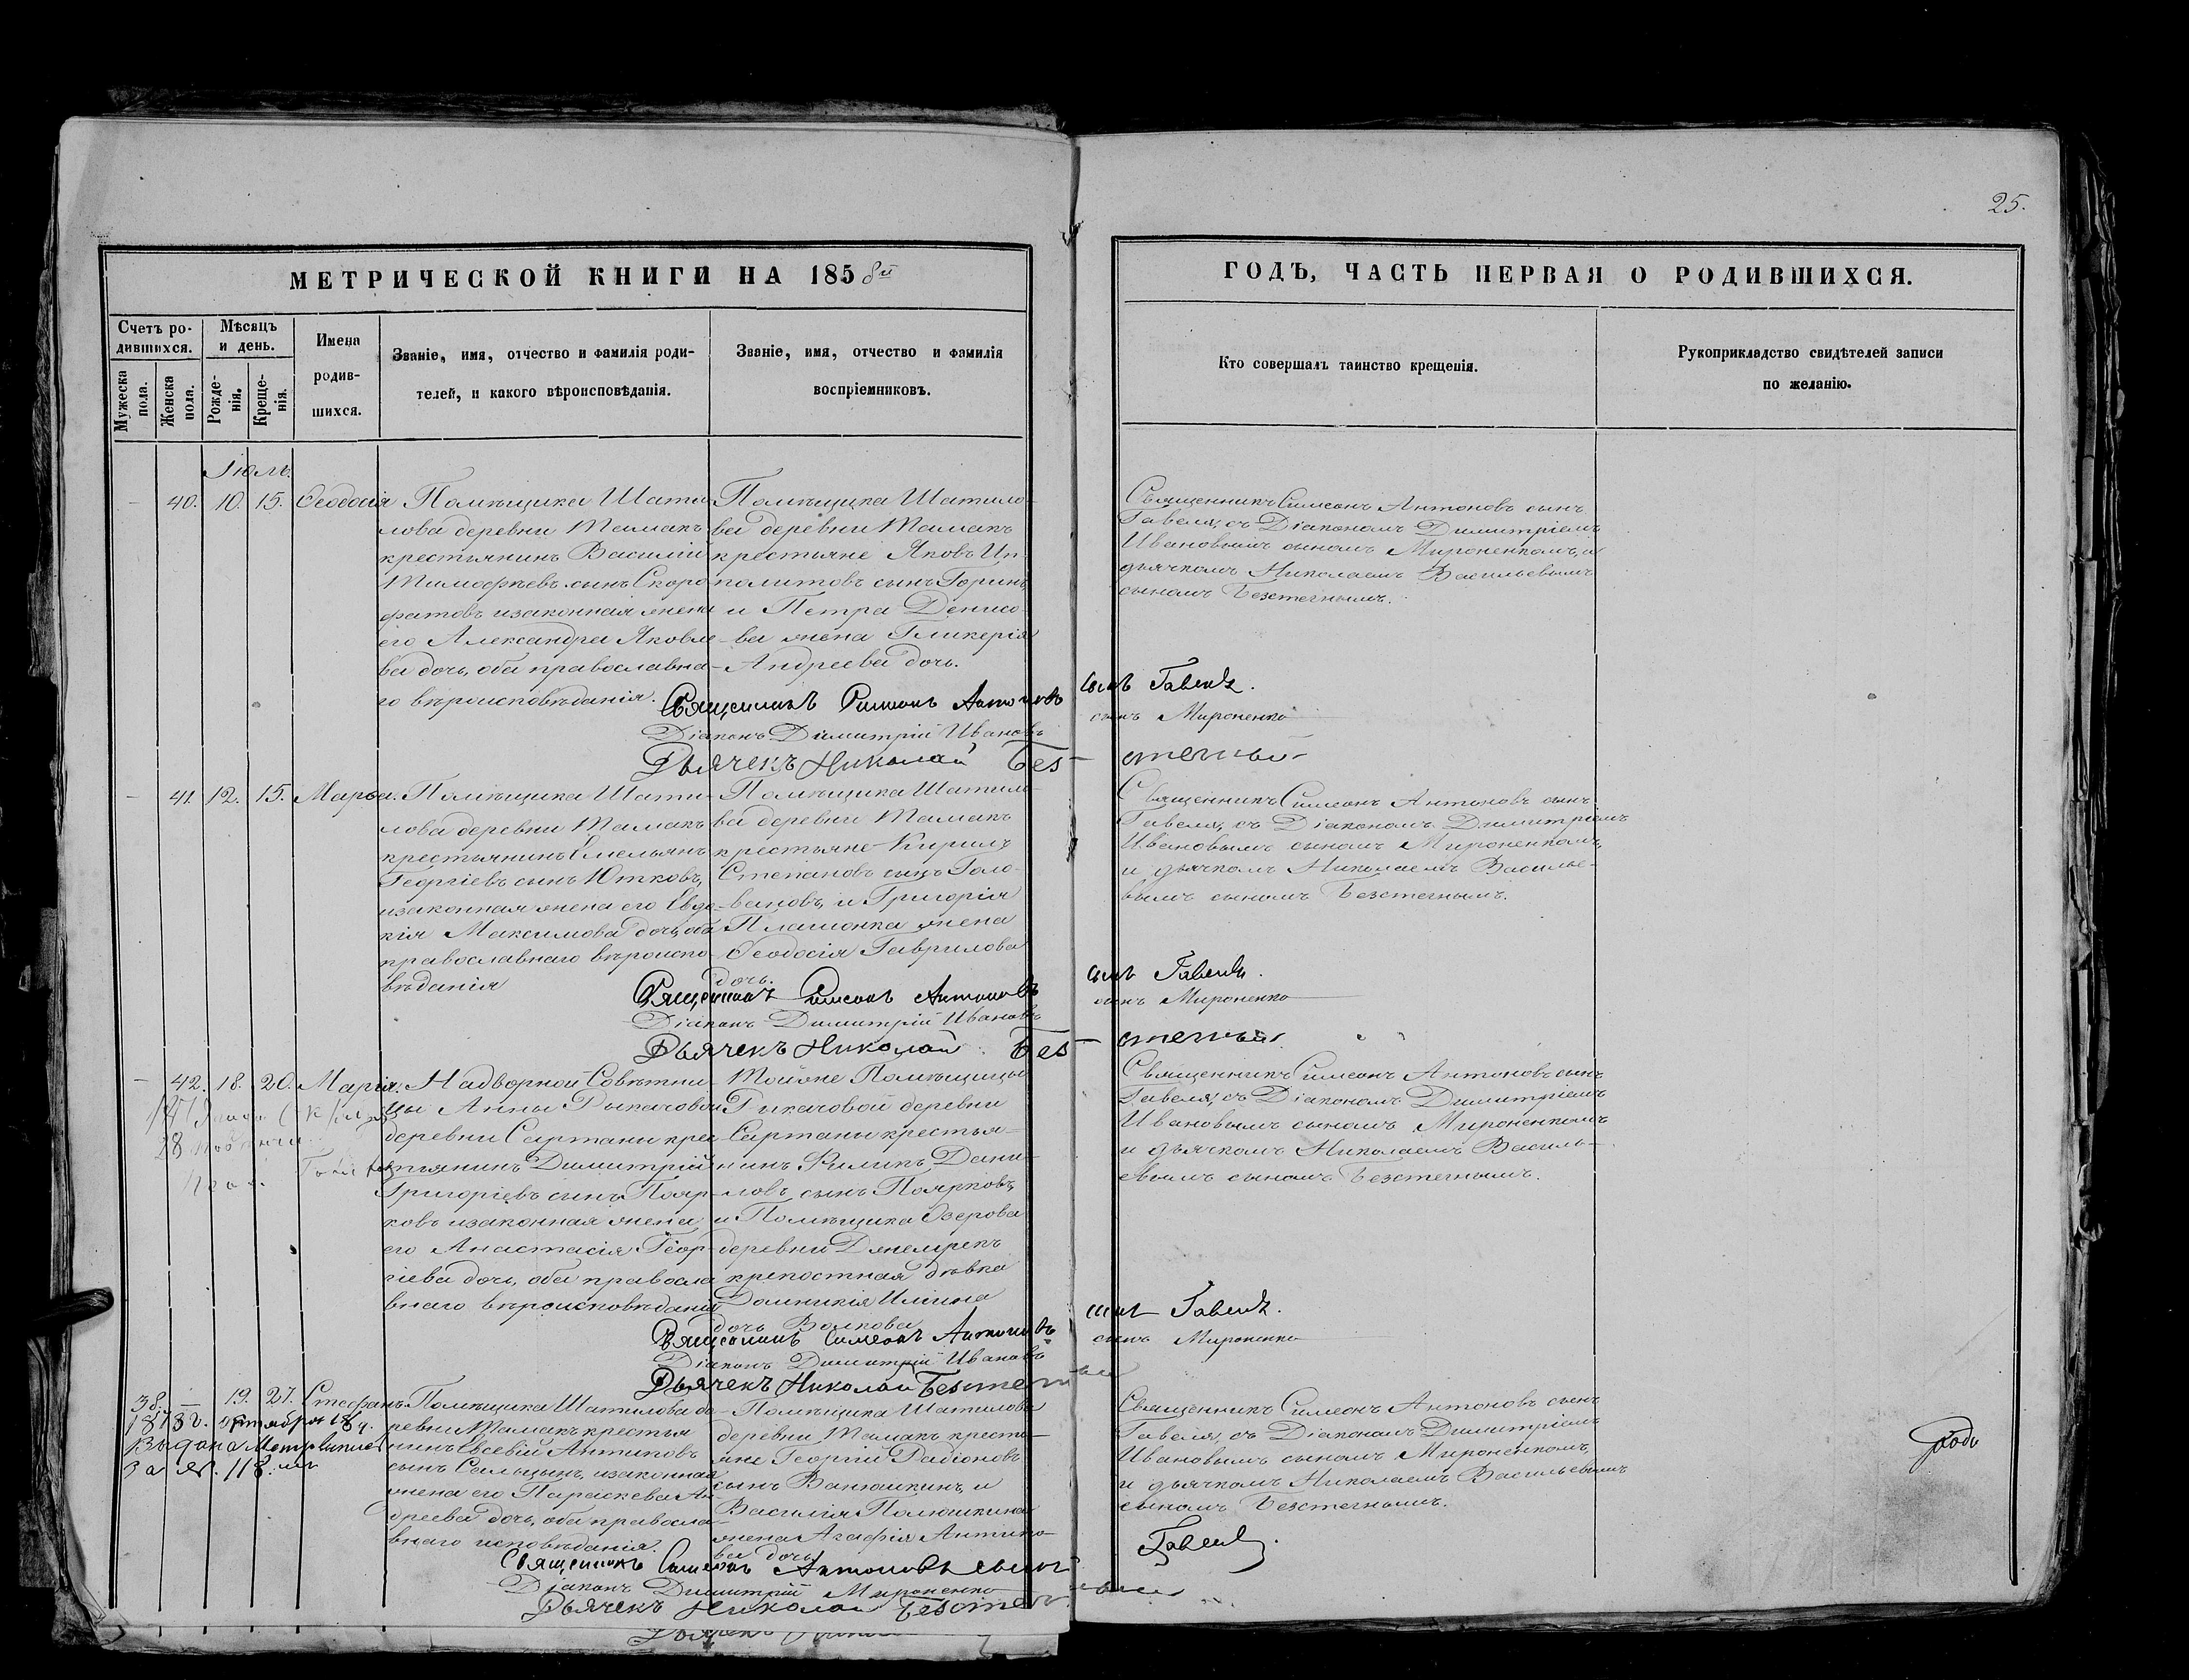 25.
МЕТРИЧЕСКОЙ КНИГИ НА 1858й
ГОДЪ, ЧАСТЬ ПЕРВАЯ О РОДИВШИХСЯ.
Счетъ ро-
дившихся.
Мужеска пола.
Женска пола.
Мѣсяцъ
и день.
Рожде-
нія.
Креще-
нія.
Имена
родив-
шихся.
Званіе, имя, отчество и фамилія роди-
телей, и какого вѣроисповѣданія.
Званіе, имя, отчество и фамилія
воспріемниковъ.
Кто совершалъ таинство крещенія.
Рукоприкладство свидѣтелей записи
по желанію.
Іюль.
40. 10. 15. Ѳеодосія
Помѣщика Шати-
лова деревни Тамакъ
крестьянинъ Василій
Тимофѣевъ сынъ Скоро
фатовъ изаконная жена
его Александра Яковле-
ва дочь, оба православна-
го вѣроисповѣданія.
Помѣщика Шатило-
ва деревни Тамакъ
крестьяне Яковъ Ип-
политовъ сынъ Горинъ,
и Петра Денисо-
ва жена Гликерія
Андреева дочь.
Священникъ Симеонъ Антоновъ сынъ
Габель, съ Діакономъ Димитріемъ
Ивановымъ сыномъ Мироненкомъ, и
дьячкомъ Николаемъ Васильевымъ
сыномъ Безстегнымъ.
Священникъ Симеонъ Антоновъ сынъ Габель.
Діаконъ Димитрій Ивановъ сынъ Мироненко
Дьячекъ Николай Без-стегный
41. 12. 15. Марья.
Помѣщика Шати-
лова деревни Тамакъ
крестьянинъ Емельянъ
Георгіевъ сынъ Ютковъ,
изаконная жена его Евдо-
кія Максимова дочь, оба
православнаго вѣроиспо-
вѣданія
Помѣщика Шатило-
ва деревни Тамакъ
крестьяне Кирилъ
Степановъ сынъ Голо-
вановъ, и Григорія
Плашонка жена
Ѳеодосія Гаврилова
дочь.
Священникъ Симеонъ Антоновъ сынъ
Габель, съ Діакономъ Димитріемъ
Ивановымъ сыномъ Мироненкомъ,
и дьячкомъ Николаемъ Василье-
вымъ сыномъ Безстегнымъ.
Священникъ Симеонъ Антоновъ сынъ Габель.
Діаконъ Димитрій Ивановъ сынъ Мироненко
Дьячекъ Николай Без-стегный
42. 18. 20. Марія.
Надворной Совѣтни-
цы Анны Рыкачовой
деревни Сартаны кре-
стьянинъ Димитрій
Григоріевъ сынъ Пояр-
ковъ изаконная жена
его Анастасія Геор-
гіева дочь, оба правосла
внаго вѣроисповѣданія
Тойже Помѣщицы
Рикачовой деревни
Сартаны крестья-
нинъ Филипъ Дани-
ловъ сынъ Поярковъ,
и Помѣщика Озерова
деревни Джемрекъ
крепостная дѣвка
Домникія Ильина
дочь Волкова
Священникъ Симеонъ Антоновъ сынъ
Габель, съ Діакономъ Димитріемъ
Ивановымъ сыномъ Мироненкомъ
и дьячкомъ Николаемъ Василь-
евымъ сыномъ Безстегнымъ.
Священникъ Симеонъ Антоновъ сынъ Габель.
Діаконъ Димитрій Ивановъ сынъ Мироненко
Дьячекъ Николай Безстегный
38. — 19. 27. Стефанъ
1878 г. 18 д.
Выдана
за №. 118.
Помѣщика Шатилова де-
ревни Тамакъ крестья
нинъ Евсевій Антиповъ
сынъ Сальцынъ, изаконная
жена его Параскева Ан-
дреева дочь, оба правосла-
внаго исповѣданія.
Помѣщика Шатилова
деревни Тамакъ кресть-
яне Георгій Радіоновъ
сынъ Ванюшкинъ, и
Василія Полюшкина
жена Агафія Антипо-
ва дочь
Священникъ Симеонъ Антоновъ сынъ
Габель, съ Діакономъ Димитріемъ
Ивановымъ сыномъ Мироненкомъ,
и дьячкомъ Николаемъ Васильевымъ
сыномъ Безстегнымъ.
Священникъ Симеонъ Антоновъ сынъ Габель.
Діаконъ Димитрій Мироненко
Дьячекъ Николай Безстегный